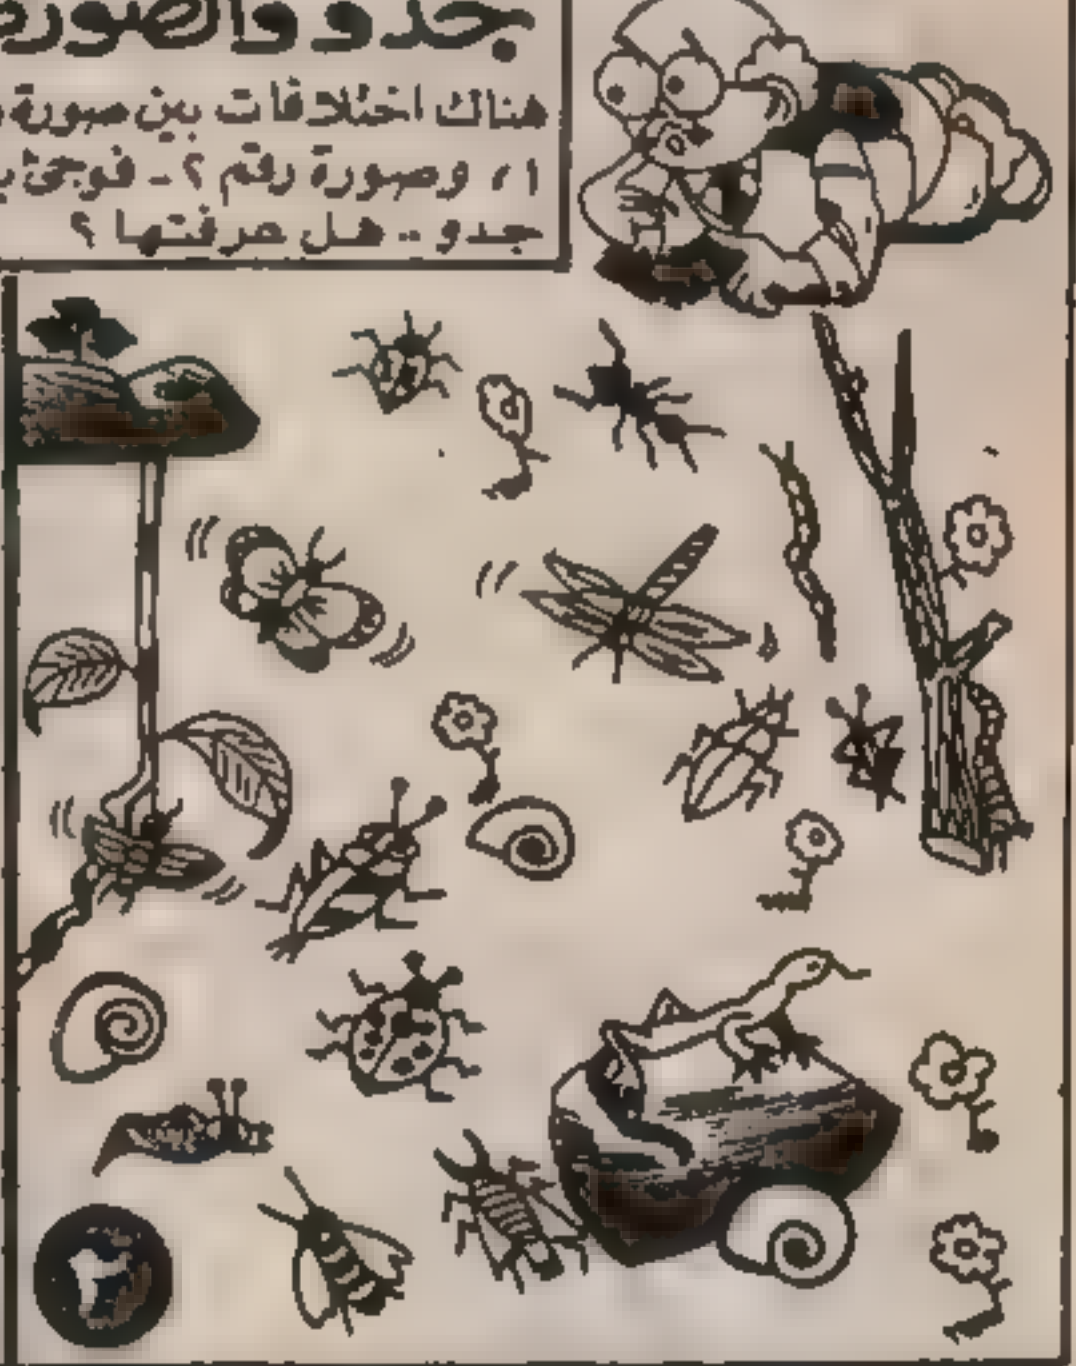 جدو والصورة
هناك اختلافات بين صورة
١، وصورة رقم ٢ - فوجئ
جدو .. هل عرفتها ؟